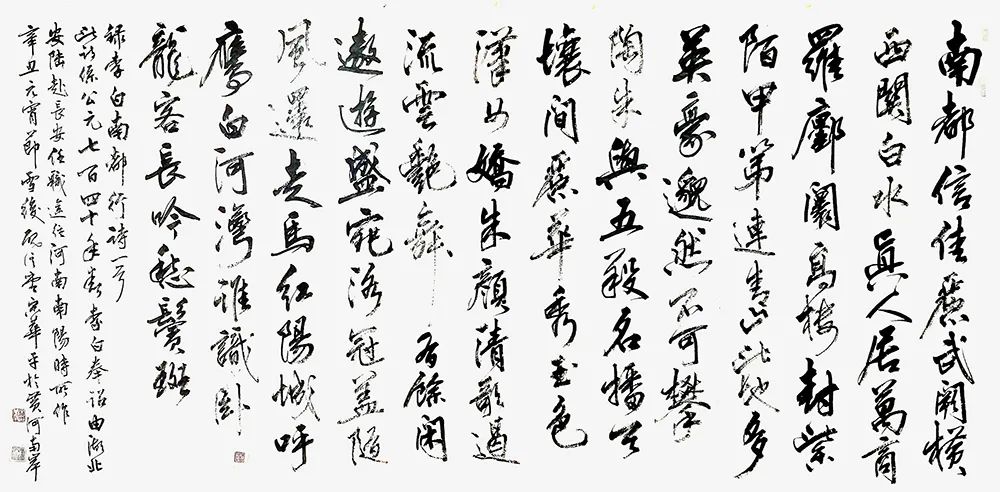 南都信佳麗武闕橫
西關白水眞人居萬商
羅鄽闠高樓對紫
陌甲第連青山此地多
英豪邈然不可攀
陶朱與五羖名播天
壤間麗華秀玉色
漢女嬌朱顏清歌遏
流雲艷舞有餘閑
遨遊盛宛洛冠蓋隨
風還走馬紅陽城呼
鷹白河灣誰識臥
龍客長吟愁鬢斑
錄李白南都行詩一首
此詩係公元七百四十年春李白奉詔由湖北
安陸赴長安任職途徑河南南陽時所作
辛丑元宵節雪後 於黃河南岸